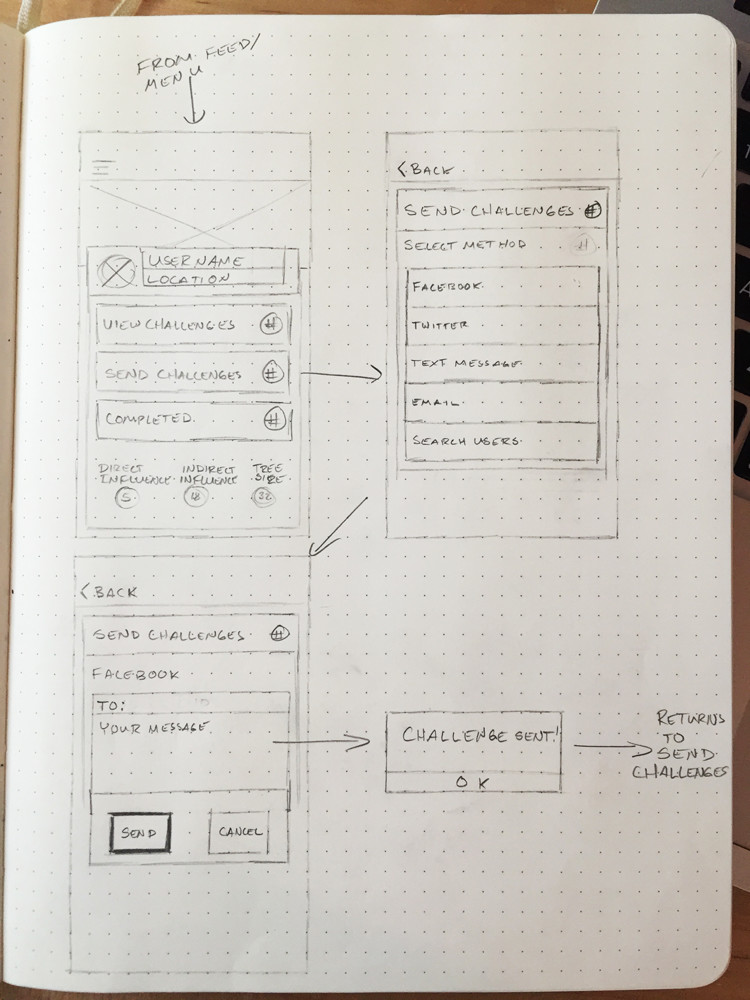 FROM FEED/
MENU
USERNAME
LOCATION
VIEW CHALLENGES #
SEND CHALLENGES #
COMPLETED #
DIRECT
INFLUENCE
5
INDIRECT
INFLUENCE
18
TREE
SIZE
32
< BACK
SEND CHALLENGES #
SELECT METHOD #
FACEBOOK
TWITTER
TEXT MESSAGE
EMAIL
SEARCH USERS
< BACK
SEND CHALLENGES #
FACEBOOK
TO:
YOUR MESSAGE
SEND CANCEL
CHALLENGE SENT!
OK
RETURNS
TO
SEND
CHALLENGES